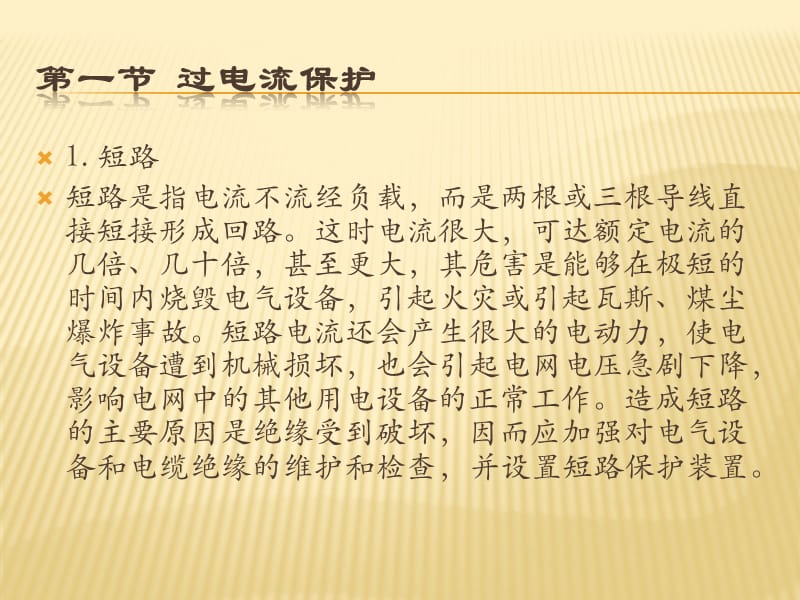 第一节 过电流保护
1. 短路
短路是指电流不流经负载，而是两根或三根导线直
接短接形成回路。这时电流很大，可达额定电流的
几倍、几十倍，甚至更大，其危害是能够在极短的
时间内烧毁电气设备，引起火灾或引起瓦斯、煤尘
爆炸事故。短路电流还会产生很大的电动力，使电
气设备遭到机械损坏，也会引起电网电压急剧下降，
影响电网中的其他用电设备的正常工作。造成短路
的主要原因是绝缘受到破坏，因而应加强对电气设
备和电缆绝缘的维护和检查，并设置短路保护装置。